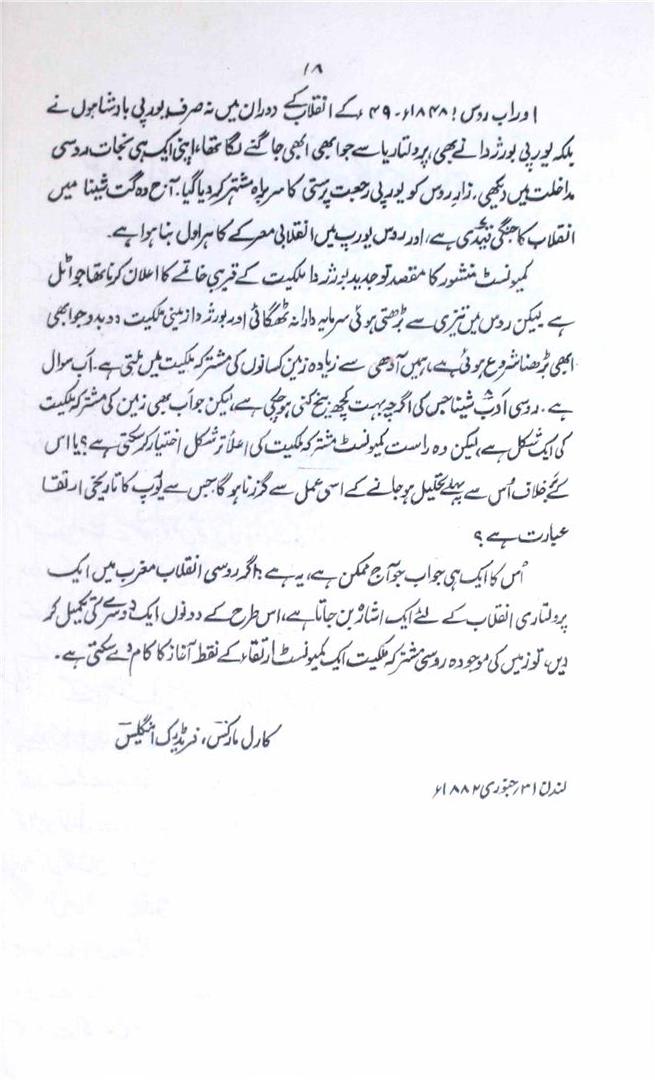 ۱۸
اور اب روس! ۱۸۴۸ء-۴۹ء کے انقلاب کے دوران میں نہ صرف یورپی بادشاہوں نے
بلکہ یورپی بورژوا نے بھی، پرولتاریا سے جو ابھی ابھی جاگنے لگا تھا، اپنی ایک ہی نجات روسی
مداخلت میں دیکھی، زارِ روس کو یورپی رجعت پرستی کا سربراہ مشتہر کر دیا گیا۔ آج وہ گت شینا میں
انقلاب کا جنگی قیدی ہے، اور روس یورپ میں انقلابی معرکے کا ہراول بنا ہوا ہے۔
کمیونسٹ منشور کا مقصد تو جدید بورژوا ملکیت کے قریبی خاتمے کا اعلان کرنا تھا جو اٹل
ہے لیکن روس میں تیزی سے بڑھتی ہوئی سرمایہ دارانہ ٹھگائی اور بورژوا زمینی ملکیت دوبدو جو ابھی
ابھی بڑھنا شروع ہوئی ہے، ہمیں آدھی سے زیادہ زمین کسانوں کی مشترکہ ملکیت میں ملتی ہے۔ اب سوال
ہے۔ روسی اوب شینا جس کی اگرچہ بہت کچھ بیخ کنی ہو چکی ہے، لیکن جو اب بھی زمین کی مشترکہ ملکیت
کی ایک شکل ہے، لیکن وہ راست کمیونسٹ مشترکہ ملکیت کی اعلاتر شکل اختیار کر سکتی ہے؟ یا اس
کے برخلاف اُس سے پہلے تحلیل ہو جانے کے اسی عمل سے گزرنا ہوگا جس سے یورپ کا تاریخی ارتقا
عبارت ہے؟
اُس کا ایک ہی جواب جو آج ممکن ہے، یہ ہے: اگر روسی انقلاب مغرب میں ایک
پرولتاری انقلاب کے لئے ایک اشارہ بن جاتا ہے، اس طرح کے دونوں ایک دوسرے کی تکمیل کر
دیں، تو زمین کی موجودہ روسی مشترکہ ملکیت ایک کمیونسٹ ارتقاء کے نقطہ آغاز کا کام دے سکتی ہے۔
کارل مارکس، فریڈرک اینگلس
لندن ۲۱؍ جنوری ۱۸۸۲ء